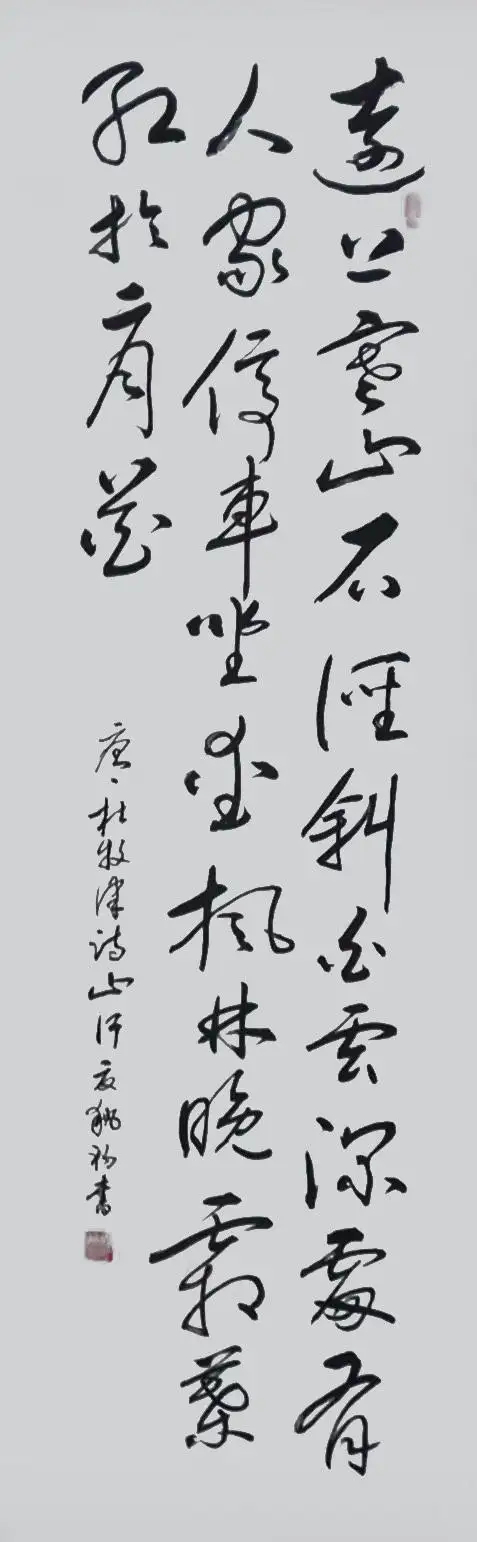 遠上寒山石徑斜白雲深處有
人家停車坐愛楓林晚霜葉
紅於二月花
唐杜牧律詩山行
書